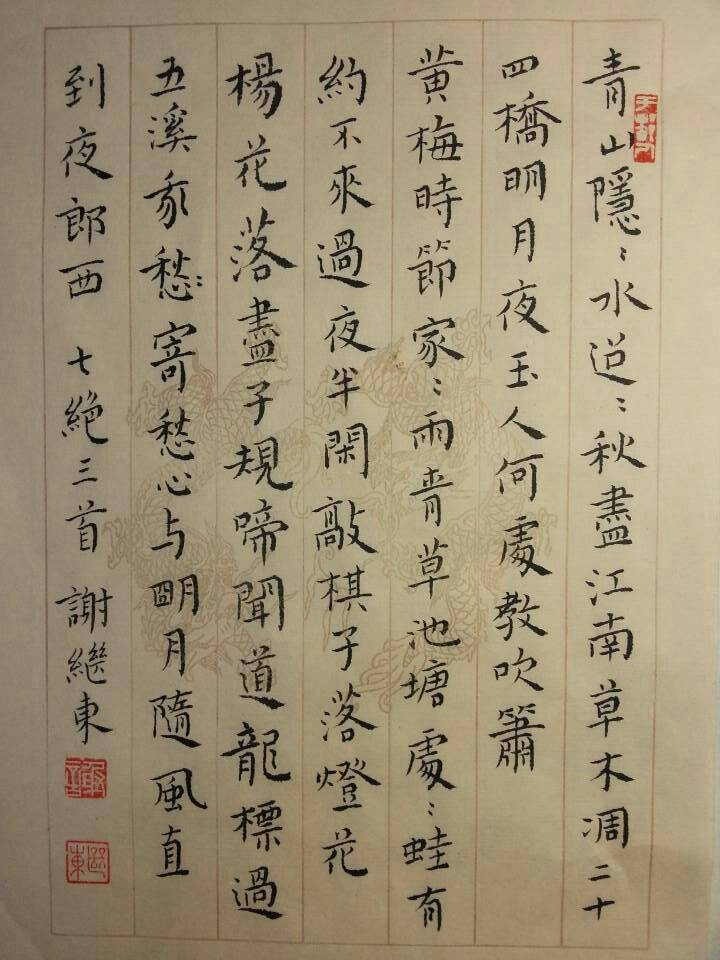 青山隱：水迢：秋盡江南草木凋二十
四橋明月夜玉人何處教吹簫
黄梅時節家：雨青草池塘處：蛙有
約不來過夜半閑敲棋子落燈花
楊花落盡子規啼聞道龍標過
五溪我愁：寄愁心与明月隨風直
到夜郎西 七絕三首 謝繼東